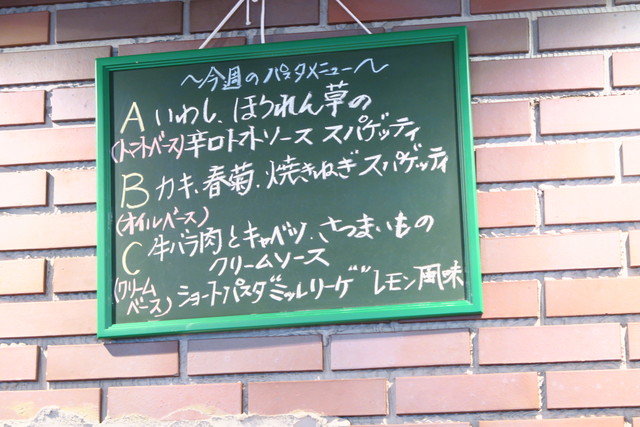 〜今週のパスタメニュー〜
A いわし、ほうれん草の
(トマトベース)辛口トマトソース スパゲッティ
B カキ、春菊、焼きねぎ スパゲッティ
(オイルベース)
C 牛バラ肉とキャベツ、さつまいもの
クリームソース
(クリームベース) ショートパスタ"ミッレリーゲ" レモン風味